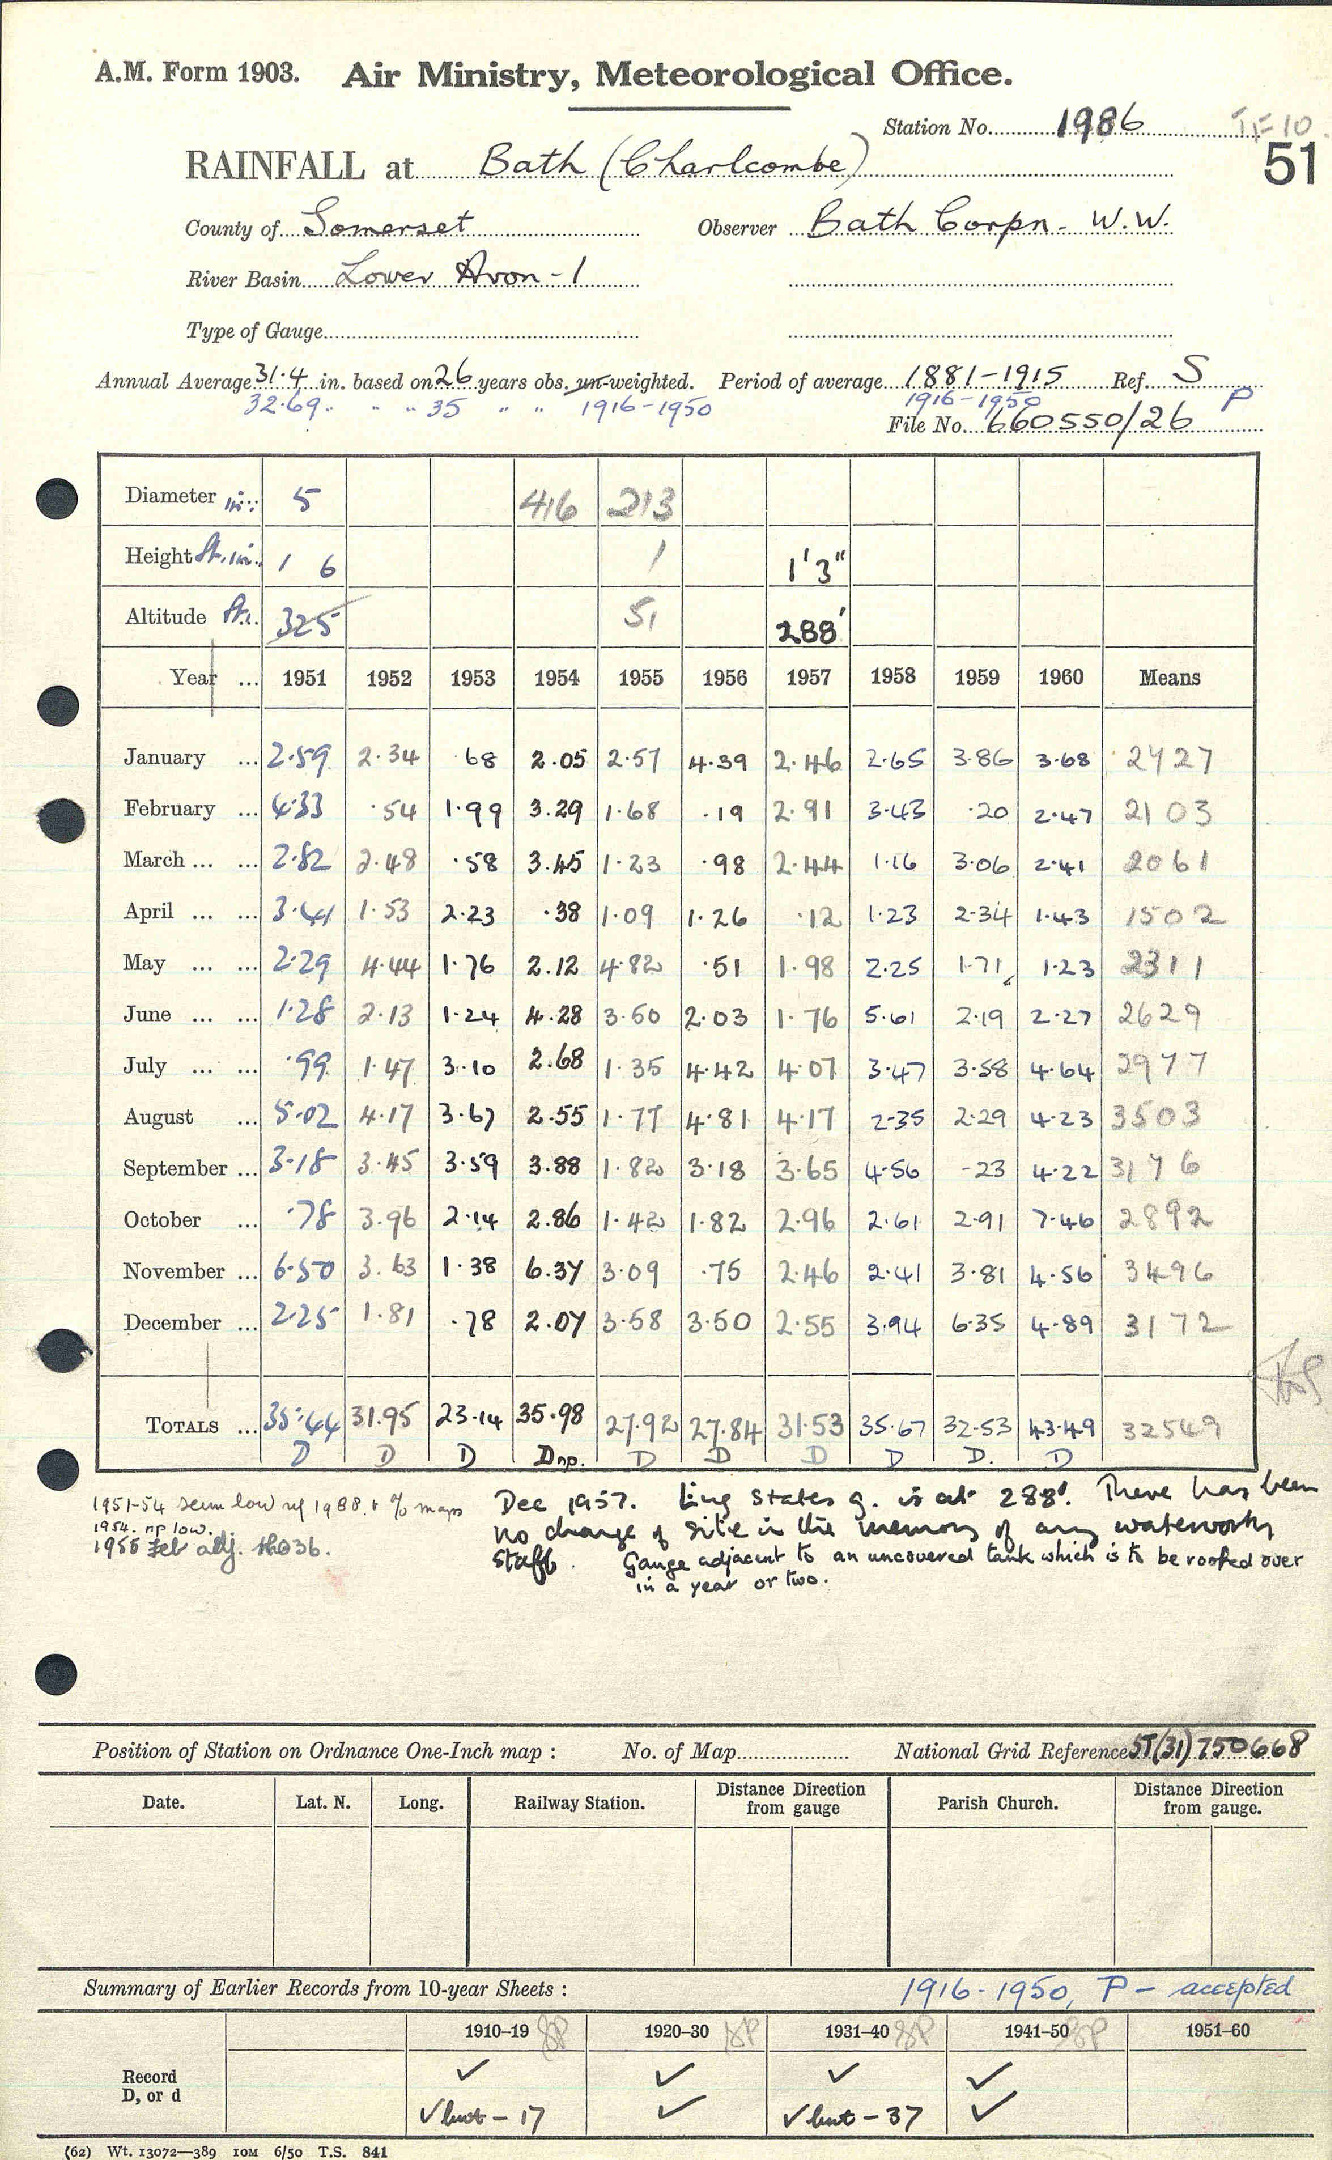 A.M. Form 1903. Air Ministry, Meteorological Office.
Station No. 1986 TF 10
51
RAINFALL at Bath (Charlcombe)
County of Somerset Observer Bath Corpn. W.W.
River Basin Lower Avon-1
Type of Gauge
Annual Average 31.4 in. based on 26 years obs. un-weighted. Period of average 1881-1915 Ref. S
32.69 " " " 35 " " 1916-1950 1916-1950 P
File No. 660550/26
Diameter in: 5 416 213
Height ft. in. 1 6 1 1'3"
Altitude ft. 325 51 288'
Year ... 1951 1952 1953 1954 1955 1956 1957 1958 1959 1960 Means
January ... 2.59 2.34 .68 2.05 2.57 4.39 2.46 2.65 3.86 3.68 2727
February ... 4.33 .54 1.99 3.29 1.68 .19 2.91 3.43 .20 2.47 2103
March ... ... 2.82 2.48 .58 3.45 1.23 .98 2.44 1.16 3.06 2.41 2061
April ... ... 3.41 1.53 2.23 .38 1.09 1.26 .12 1.23 2.34 1.43 1502
May ... ... 2.29 4.44 1.76 2.12 4.82 .51 1.98 2.25 1.71 1.23 2311
June ... ... 1.28 2.13 1.24 4.28 3.50 2.03 1.76 5.61 2.19 2.27 2629
July ... ... .99 1.47 3.10 2.68 1.35 4.42 4.07 3.47 3.58 4.64 2977
August ... 5.02 4.17 3.67 2.55 1.77 4.81 4.17 2.35 2.29 4.23 3503
September ... 3.18 3.45 3.59 3.88 1.82 3.18 3.65 4.56 .23 4.22 3176
October ... .78 3.96 2.14 2.86 1.42 1.82 2.96 2.61 2.91 7.46 2892
November ... 6.50 3.63 1.38 6.37 3.09 .75 2.46 2.41 3.81 4.56 3496
December ... 2.25 1.81 .78 2.07 3.58 3.50 2.55 3.94 6.35 4.89 3172
TOTALS ... 35.44 31.95 23.14 35.98 27.92 27.84 31.53 35.67 32.53 43.49 32549
D D D Dnp. D D D D D. D
1951-54 seem low 1988. % maps
1954. np low.
1955 Feb adj.
Dec 1957. Ling states g. is at 288'. There has been
no change of site in the memory of any waterworks
staff. Gauge adjacent to an uncovered tank which is to be roofed over
in a year or two.
Position of Station on Ordnance One-Inch map : No. of Map National Grid Reference ST(31)750668
Date. Lat. N. Long. Railway Station. Distance from gauge Direction Parish Church. Distance from gauge. Direction
Summary of Earlier Records from 10-year Sheets : 1916-1950, P - accepted
1910–19 SP 1920–30 SP 1931–40 SP 1941–50 SP 1951–60
Record ✓ ✓ ✓ ✓
D, or d ✓ but - 17 ✓ ✓ but - 37 ✓
(62) Wt. 13072—389 10M 6/50 T.S. 841